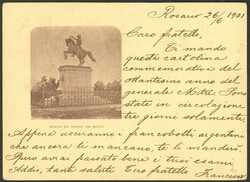 Rosario 26/6 1901
Caro fratello,
Ti mando
questa cartolina
commemorativa del
ottantesimo anno del
generale Mitre. Sono
state in circolazione
tre giorni solamente.
Appena usciranno i francobolli argentini
che ancora ti mancano, te li manderò.
Spero avrai passato bene i tuoi esami.
Addio, tante salute. Tuo fratello Francesco